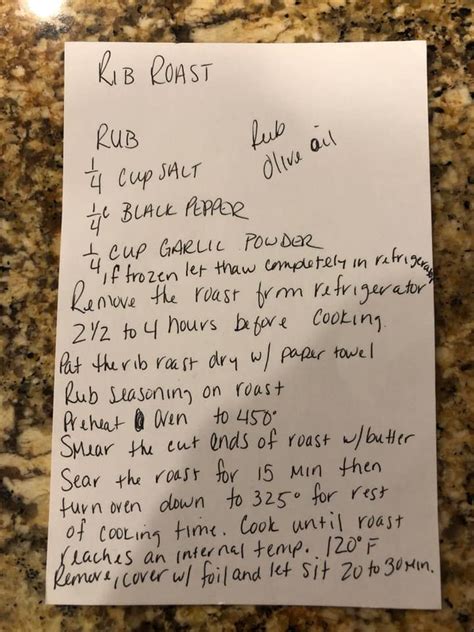 RIB ROAST
RUB
Rub
olive oil
1/4 cup SALT
1/4 c BLACK PEPPER
1/4 CUP GARLIC POWDER
if frozen let thaw completely in refrigerator
Remove the roast from refrigerator
2 1/2 to 4 hours before cooking.
Pat the rib roast dry w/ paper towel
Rub seasoning on roast
Preheat oven to 450°
Smear the cut ends of roast w/butter
Sear the roast for 15 Min then
turn oven down to 325° for rest
of cooking time. Cook until roast
reaches an internal temp. 120°F
Remove, cover w/ foil and let sit 20 to 30 min.